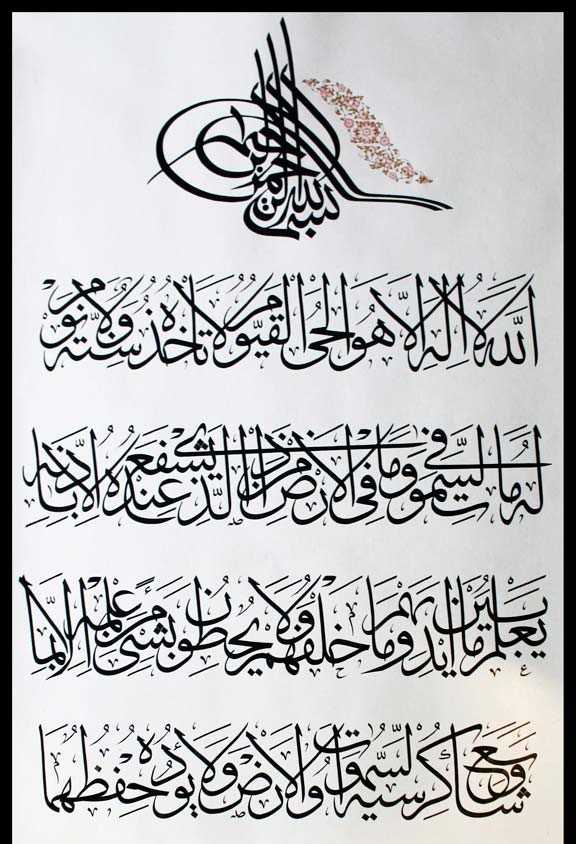 بسم الله الرحمن الرحيم
الله لا اله الا هو الحى القيوم لا تاخذه سنة ولا نوم
له ما فى السموت وما فى الارض من ذا الذى يشفع عنده الا باذنه
يعلم ما بين ايديهم وما خلفهم ولا يحيطون بشىء من علمه الا بما
شاء وسع كرسيه السموت والارض ولا يؤده حفظهما